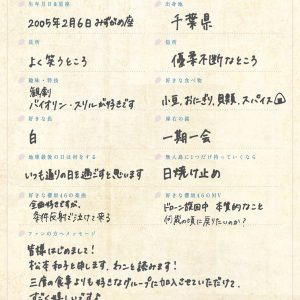 生年月日&星座
出身地
2005年2月6日みずがめ座
千葉県
長所
短所
よく笑うところ
優柔不断なところ
趣味・特技
好きな食べ物
観劇
バイオリン・スリルが好きです
小豆、おにぎり、貝類、スパイス
好きな色
座右の銘
白
一期一会
地球最後の日は何をする
無人島に1つだけ持っていくなら
いつも通りの日を過ごすと思います
日焼け止め
好きな櫻坂46の楽曲
好きな櫻坂46のMV
全曲好きですが、
条件反射で泣けて来る
ドローン旋回中 本質的なこと
何歳の頃に戻りたいのか?
ファンの方へメッセージ
皆様はじめまして!
松本和子と申します。わこと読みます!
三度の食事よりも好きなグループに加入させていただけて、
すごく嬉しいですよ